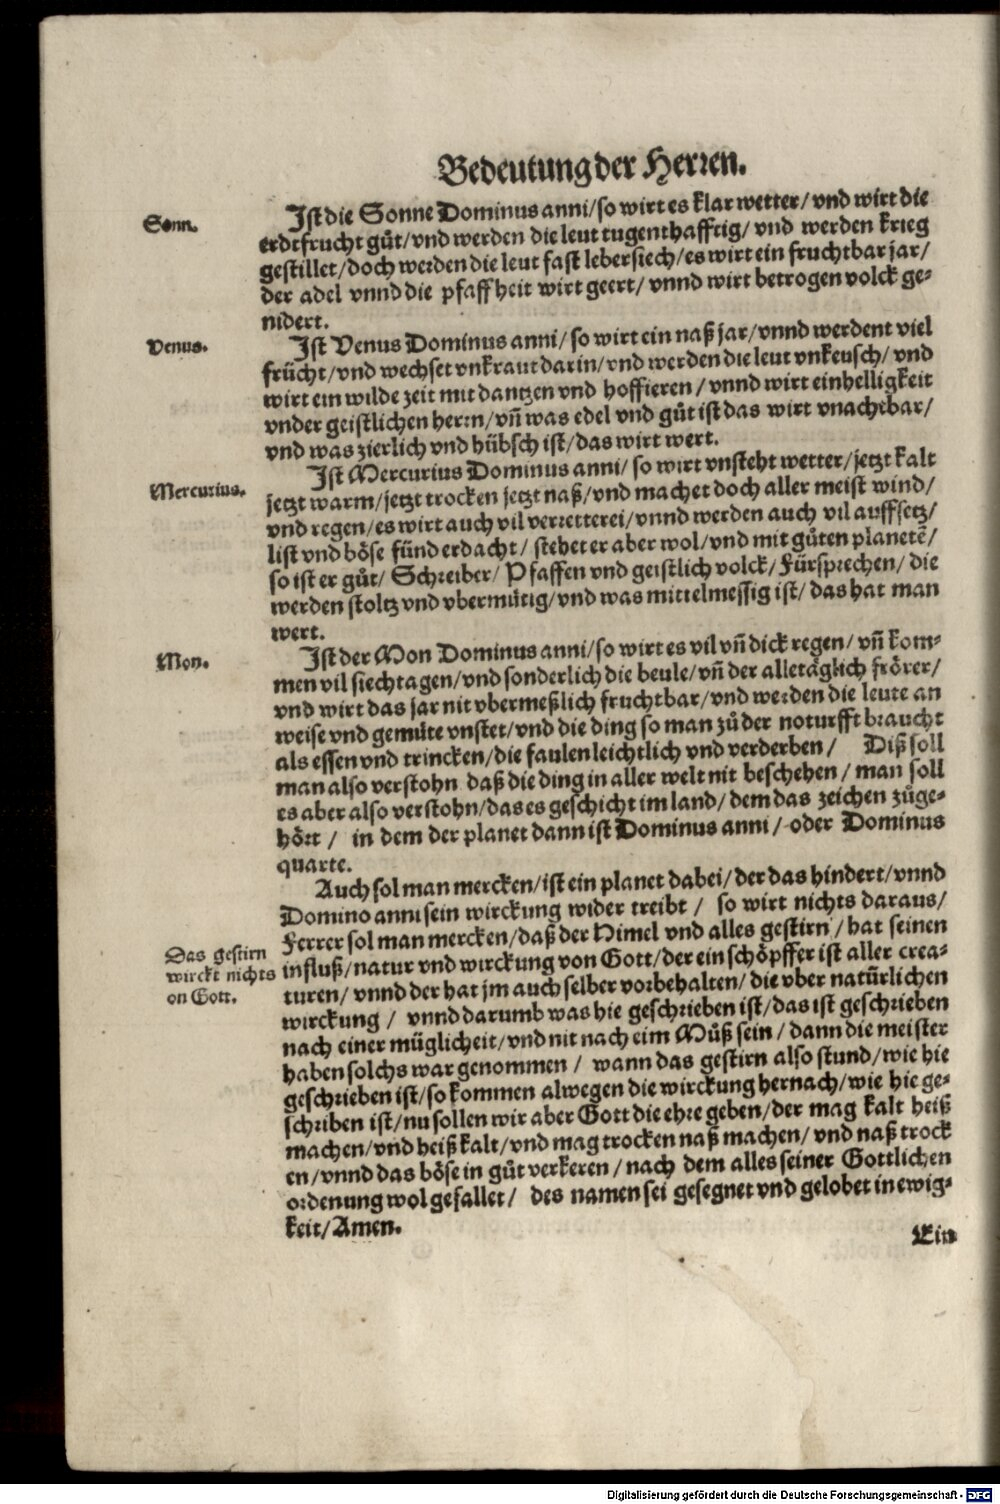 Bedeutung der Herren.
Sonn.
Ist die Sonne Dominus anni/ so wirt es klar wetter/ vnd wirt die
erdtfrucht gůt/ vnd werden die leut tugenthafftig/ vnd werden krieg
gestillet/ doch werden die leut fast lebersiech/ es wirt ein fruchtbar jar/
der adel vnnd die pfaffheit wirt geert/ vnnd wirt betrogen volck ge-
nidert.
Venus.
Ist Venus Dominus anni/ so wirt ein naß jar/ vnnd werdent viel
frücht/ vnd wechset vnkraut darin/ vnd werden die leut vnkeusch/ vnd
wirt ein wilde zeit mit dantzen vnd hoffieren/ vnnd wirt einhelligkeit
vnder geistlichen herrn/ vñ was edel vnd gůt ist das wirt vnachtbar/
vnd was zierlich vnd hübsch ist/ das wirt wert.
Mercurius.
Ist Mercurius Dominus anni/ so wirt vnsteht wetter/ jetzt kalt
jetzt warm/ jetzt trocken jetzt naß/ vnd machet doch aller meist wind/
vnd regen/ es wirt auch vil verretterei/ vnnd werden auch vil auffsetz/
list vnd böse fünd erdacht/ stehet er aber wol/ vnd mit gůten planetẽ/
so ist er gůt/ Schreiber/ Pfaffen vnd geistlich volck/ Fürsprechen/ die
werden stoltz vnd vbermütig/ vnd was mittelmessig ist/ das hat man
wert.
Mon.
Ist der Mon Dominus anni/ so wirt es vil vñ dick regen/ vñ kom-
men vil siechtagen/ vnd sonderlich die beule/ vñ der alletäglich frörer/
vnd wirt das jar nit vbermeßlich fruchtbar/ vnd werden die leute an
weise vnd gemüte vnstet/ vnd die ding so man zů der noturfft braucht
als essen vnd trincken/ die faulen leichtlich vnd verderben/ Diß soll
man also verstohn daß die ding in aller welt nit beschehen/ man soll
es aber also verstohn/ das es geschicht im land/ dem das zeichen zůge-
hört/ in dem der planet dann ist Dominus anni/ oder Dominus
quarte.
Auch sol man mercken/ ist ein planet dabei/ der das hindert/ vnnd
Domino anni sein wirckung wider treibt/ so wirt nichts daraus/
Das gestirn
wirckt nichts
on Gott.
Ferrer sol man mercken/ daß der Himel vnd alles gestirn/ hat seinen
influß/ natur vnd wirckung von Gott/ der ein schöpffer ist aller crea-
turen/ vnnd der hat jm auch selber vorbehalten/ die vber natürlichen
wirckung/ vnnd darumb was hie geschrieben ist/ das ist geschrieben
nach einer müglicheit/ vnd nit nach eim Můß sein/ dann die meister
haben solchs war genommen/ wann das gestirn also stund/ wie hie
geschrieben ist/ so kommen alwegen die wirckung hernach/ wie hie ge-
schriben ist/ nu sollen wir aber Gott die ehre geben/ der mag kalt heiß
machen/ vnd heiß kalt/ vnd mag trocken naß machen/ vnd naß trock
en/ vnnd das böse in gůt verkeren/ nach dem alles seiner Gottlichen
ordenung wol gefallet/ des namen sei gesegnet vnd gelobet in ewig-
keit/ Amen.
Ein
Digitalisierung gefördert durch die Deutsche Forschungsgemeinschaft - DFG